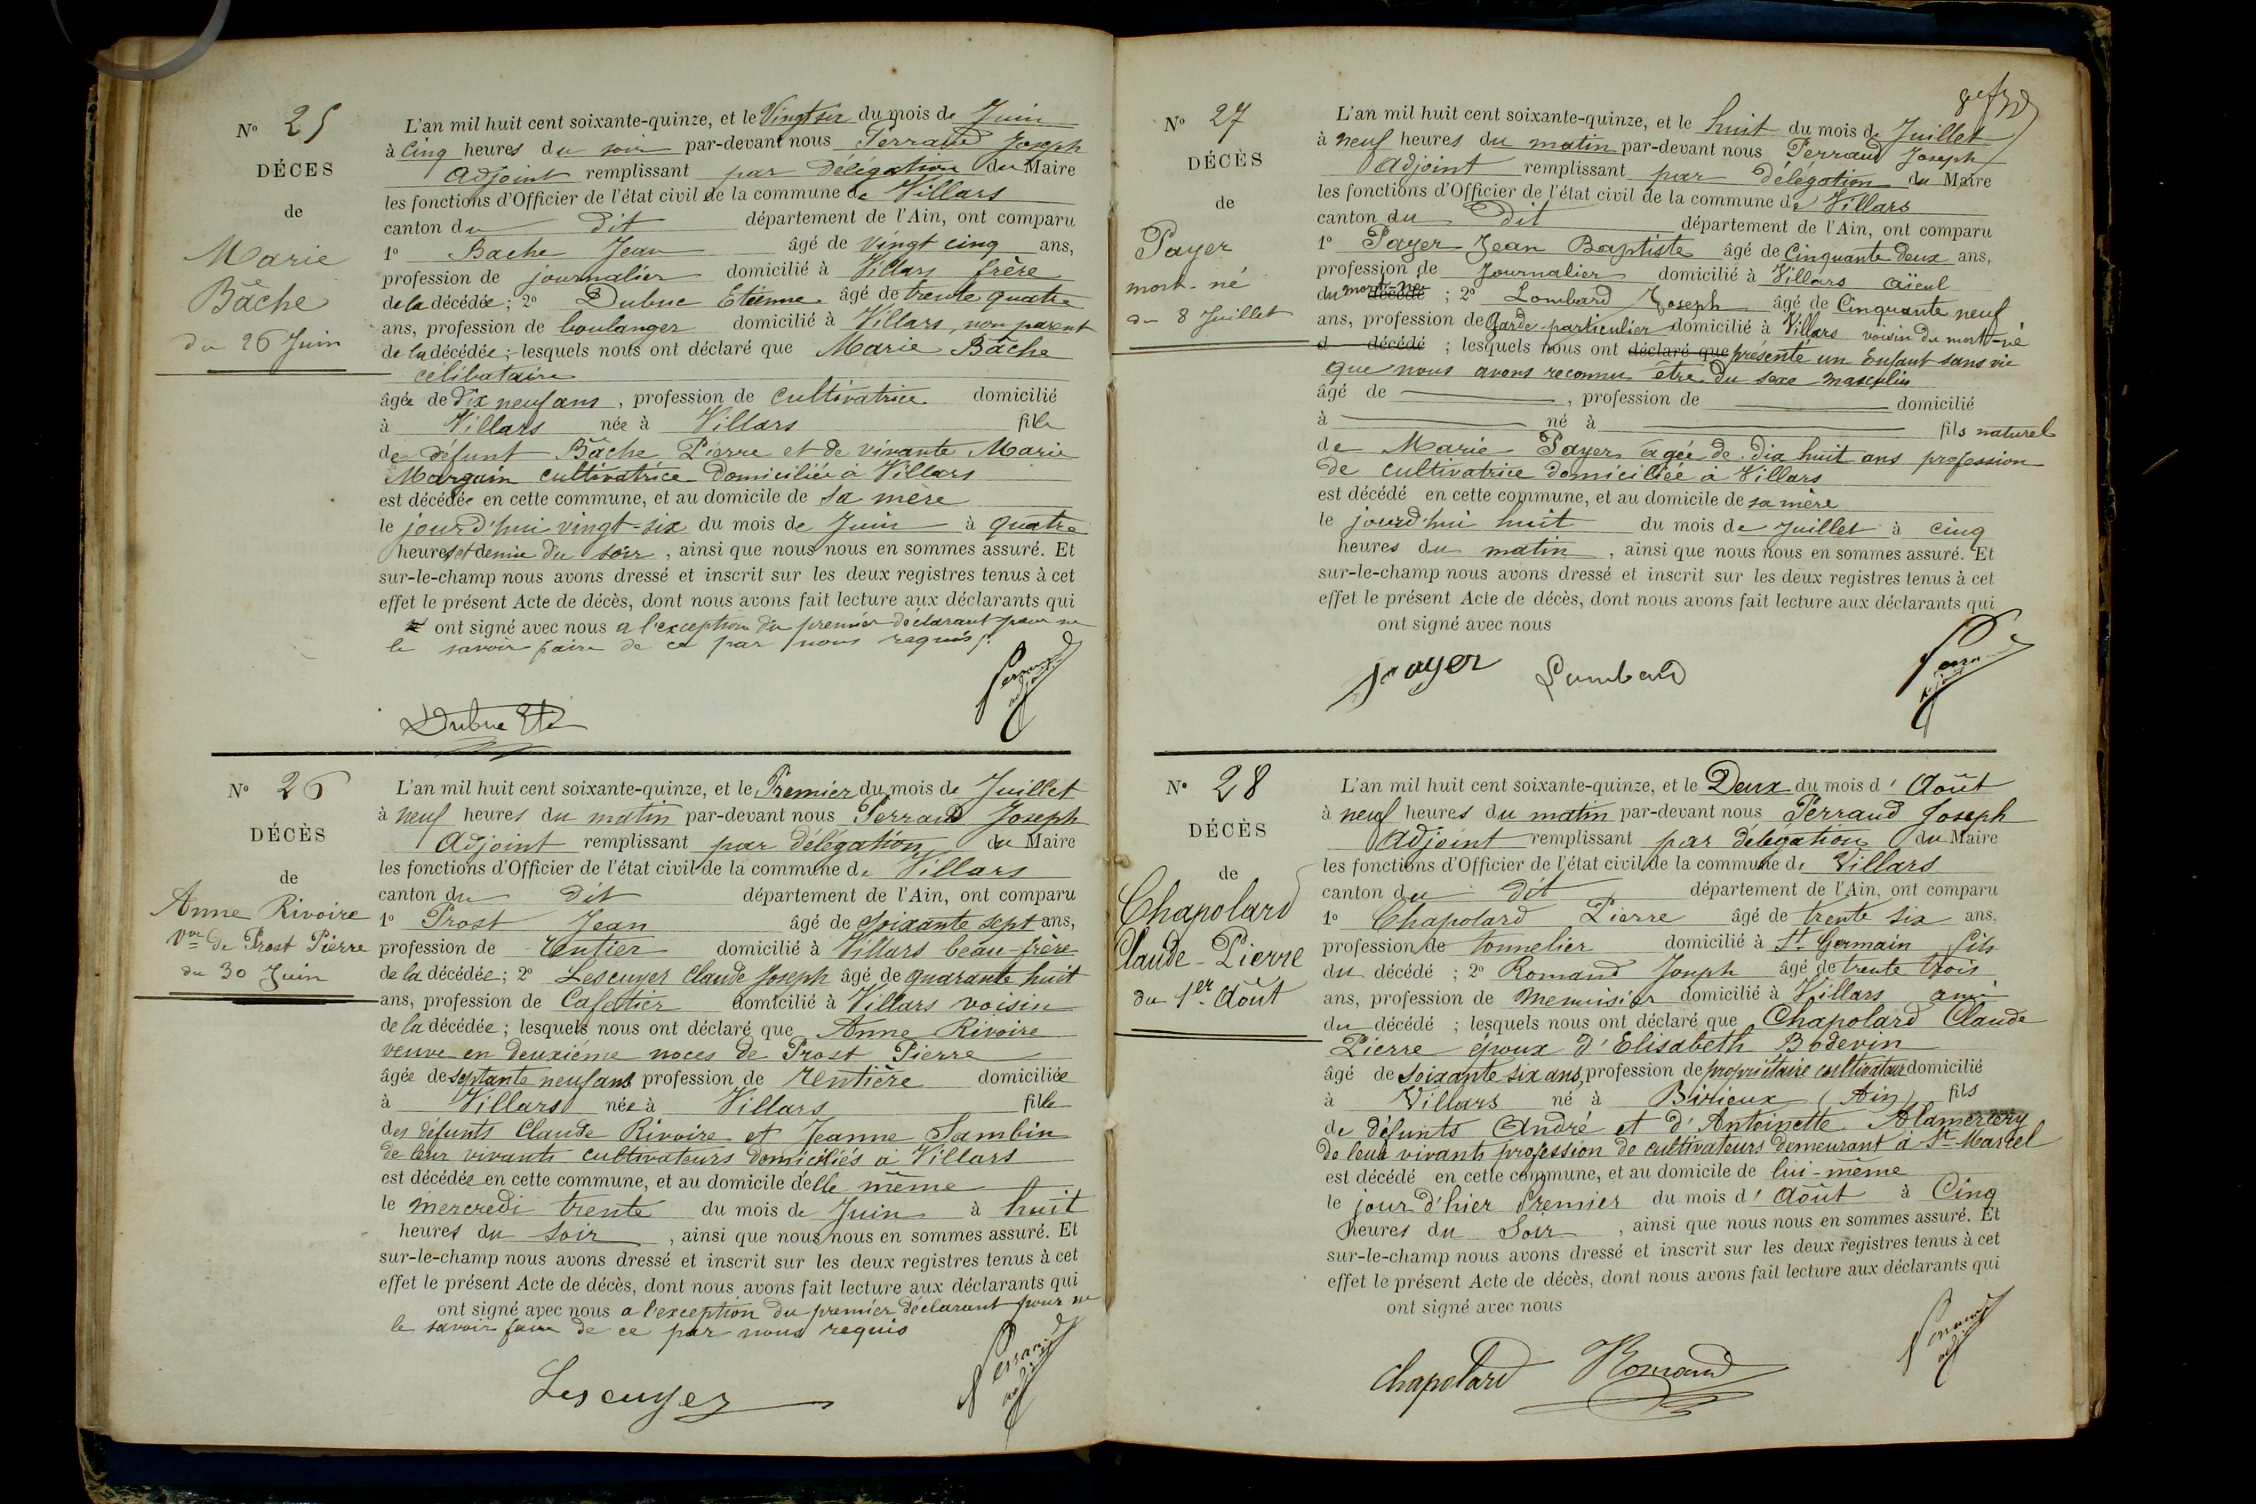 N° 25
DÉCES
de
Marie
Bâche
du 26 Juin
L'an mil huit cent soixante-quinze, et le Vingt six du mois de Juin
à Cinq heures du soir par-devant nous Perraud Joseph
Adjoint remplissant par délégation du Maire
les fonctions d'Officier de l'état civil de la commune de Villars
canton du dit département de l'Ain, ont comparu
1° Bache Jean âgé de Vingt cinq ans,
profession de journalier domicilié à Villars frère
de la décédée; 2° Dubuc Etienne âgé de trente quatre
ans, profession de boulanger domicilié à Villars, non parent
de la décédée; lesquels nous ont déclaré que Marie Bâche
célibataire
âgée de dix neuf ans, profession de cultivatrice domicilié
à Villars née à Villars fille
de défunt Bâche Pierre et de vivante Marie
Marguin cultivatrice domiciliée à Villars
est décédée en cette commune, et au domicile de sa mère
le jourd'hui vingt-six du mois de Juin à quatre
heures et demie du soir, ainsi que nous nous en sommes assuré. Et
sur-le-champ nous avons dressé et inscrit sur les deux registres tenus à cet
effet le présent Acte de décès, dont nous avons fait lecture aux déclarants qui
ont signé avec nous a l'exception du premier déclarant pour ne
le savoir faire de ce par nous requis.
Perraud
adj
Dubuc Et
N° 26
DÉCÈS
de
Anne Rivoire
Vve de Prost Pierre
du 30 Juin
L'an mil huit cent soixante-quinze, et le Premier du mois de Juillet
à neuf heures du matin par-devant nous Perraud Joseph
Adjoint remplissant par délégation du Maire
les fonctions d'Officier de l'état civil de la commune de Villars
canton du dit département de l'Ain, ont comparu
1° Prost Jean âgé de soixante sept ans,
profession de rentier domicilié à Villars beau-frère
de la décédée; 2° Lescuyer Claude Joseph âgé de quarante huit
ans, profession de Cafetier domicilié à Villars voisin
de la décédée; lesquels nous ont déclaré que Anne Rivoire
veuve en deuxième noces de Prost Pierre
âgée de septante neuf ans profession de rentière domiciliée
à Villars née à Villars fille
des défunts Claude Rivoire et Jeanne Sambin
de leur vivants cultivateurs domiciliés à Villars
est décédée en cette commune, et au domicile d'elle même
le mercredi trente du mois de Juin à huit
heures du soir, ainsi que nous nous en sommes assuré. Et
sur-le-champ nous avons dressé et inscrit sur les deux registres tenus à cet
effet le présent Acte de décès, dont nous avons fait lecture aux déclarants qui
ont signé avec nous a l'exception du premier déclarant pour ne
le savoir faire de ce par nous requis
Perraud
adj
Lescuyer
N° 27
DÉCÈS
de
Payer
mort-né
du 8 Juillet
L'an mil huit cent soixante-quinze, et le huit du mois de Juillet
à neuf heures du matin par-devant nous Perraud Joseph
Adjoint remplissant par délégation du Maire
les fonctions d'Officier de l'état civil de la commune de Villars
canton du Dit département de l'Ain, ont comparu
1° Payer Jean Baptiste âgé de Cinquante deux ans,
profession de Journalier domicilié à Villars aïeul
du mort-né décédé; 2° Lombard Joseph âgé de Cinquante neuf
ans, profession de Garde particulier domicilié à Villars voisin du mort-né
d décédé; lesquels nous ont déclaré que présenté un Enfant sans vie
que nous avons reconnu être du sexe masculin
âgé de , profession de domicilié
à né à fils naturel
de Marie Payer âgée de dix huit ans profession
de cultivatrice domiciliée à Villars
est décédé en cette commune, et au domicile de sa mère
le jourd'hui huit du mois de Juillet à cinq
heures du matin, ainsi que nous nous en sommes assuré. Et
sur-le-champ nous avons dressé et inscrit sur les deux registres tenus à cet
effet le présent Acte de décès, dont nous avons fait lecture aux déclarants qui
ont signé avec nous
payer Lombard Perraud
N° 28
DÉCÈS
de
Chapolard
Claude-Pierre
du 1er Août
L'an mil huit cent soixante-quinze, et le Deux du mois d'Août
à neuf heures du matin par-devant nous Perraud Joseph
Adjoint remplissant par délégation du Maire
les fonctions d'Officier de l'état civil de la commune de Villars
canton du dit département de l'Ain, ont comparu
1° Chapolard Pierre âgé de trente six ans,
profession de tonnelier domicilié à St Germain fils
du décédé; 2° Romand Joseph âgé de trente trois
ans, profession de Menuisier domicilié à Villars ami
du décédé; lesquels nous ont déclaré que Chapolard Claude
Pierre époux d'Elisabeth Bodevin
âgé de soixante six ans, profession de propriétaire cultivateur domicilié
à Villars né à Birieux (Ain) fils
de défunts André et d'Antoinette Alamercery
de leur vivants profession de cultivateurs demeurant à St-Marcel
est décédé en cette commune, et au domicile de lui-même
le jour d'hier Premier du mois d'Août à Cinq
heures du Soir, ainsi que nous nous en sommes assuré. Et
sur-le-champ nous avons dressé et inscrit sur les deux registres tenus à cet
effet le présent Acte de décès, dont nous avons fait lecture aux déclarants qui
ont signé avec nous
Chapolard Romand Perraud
adj